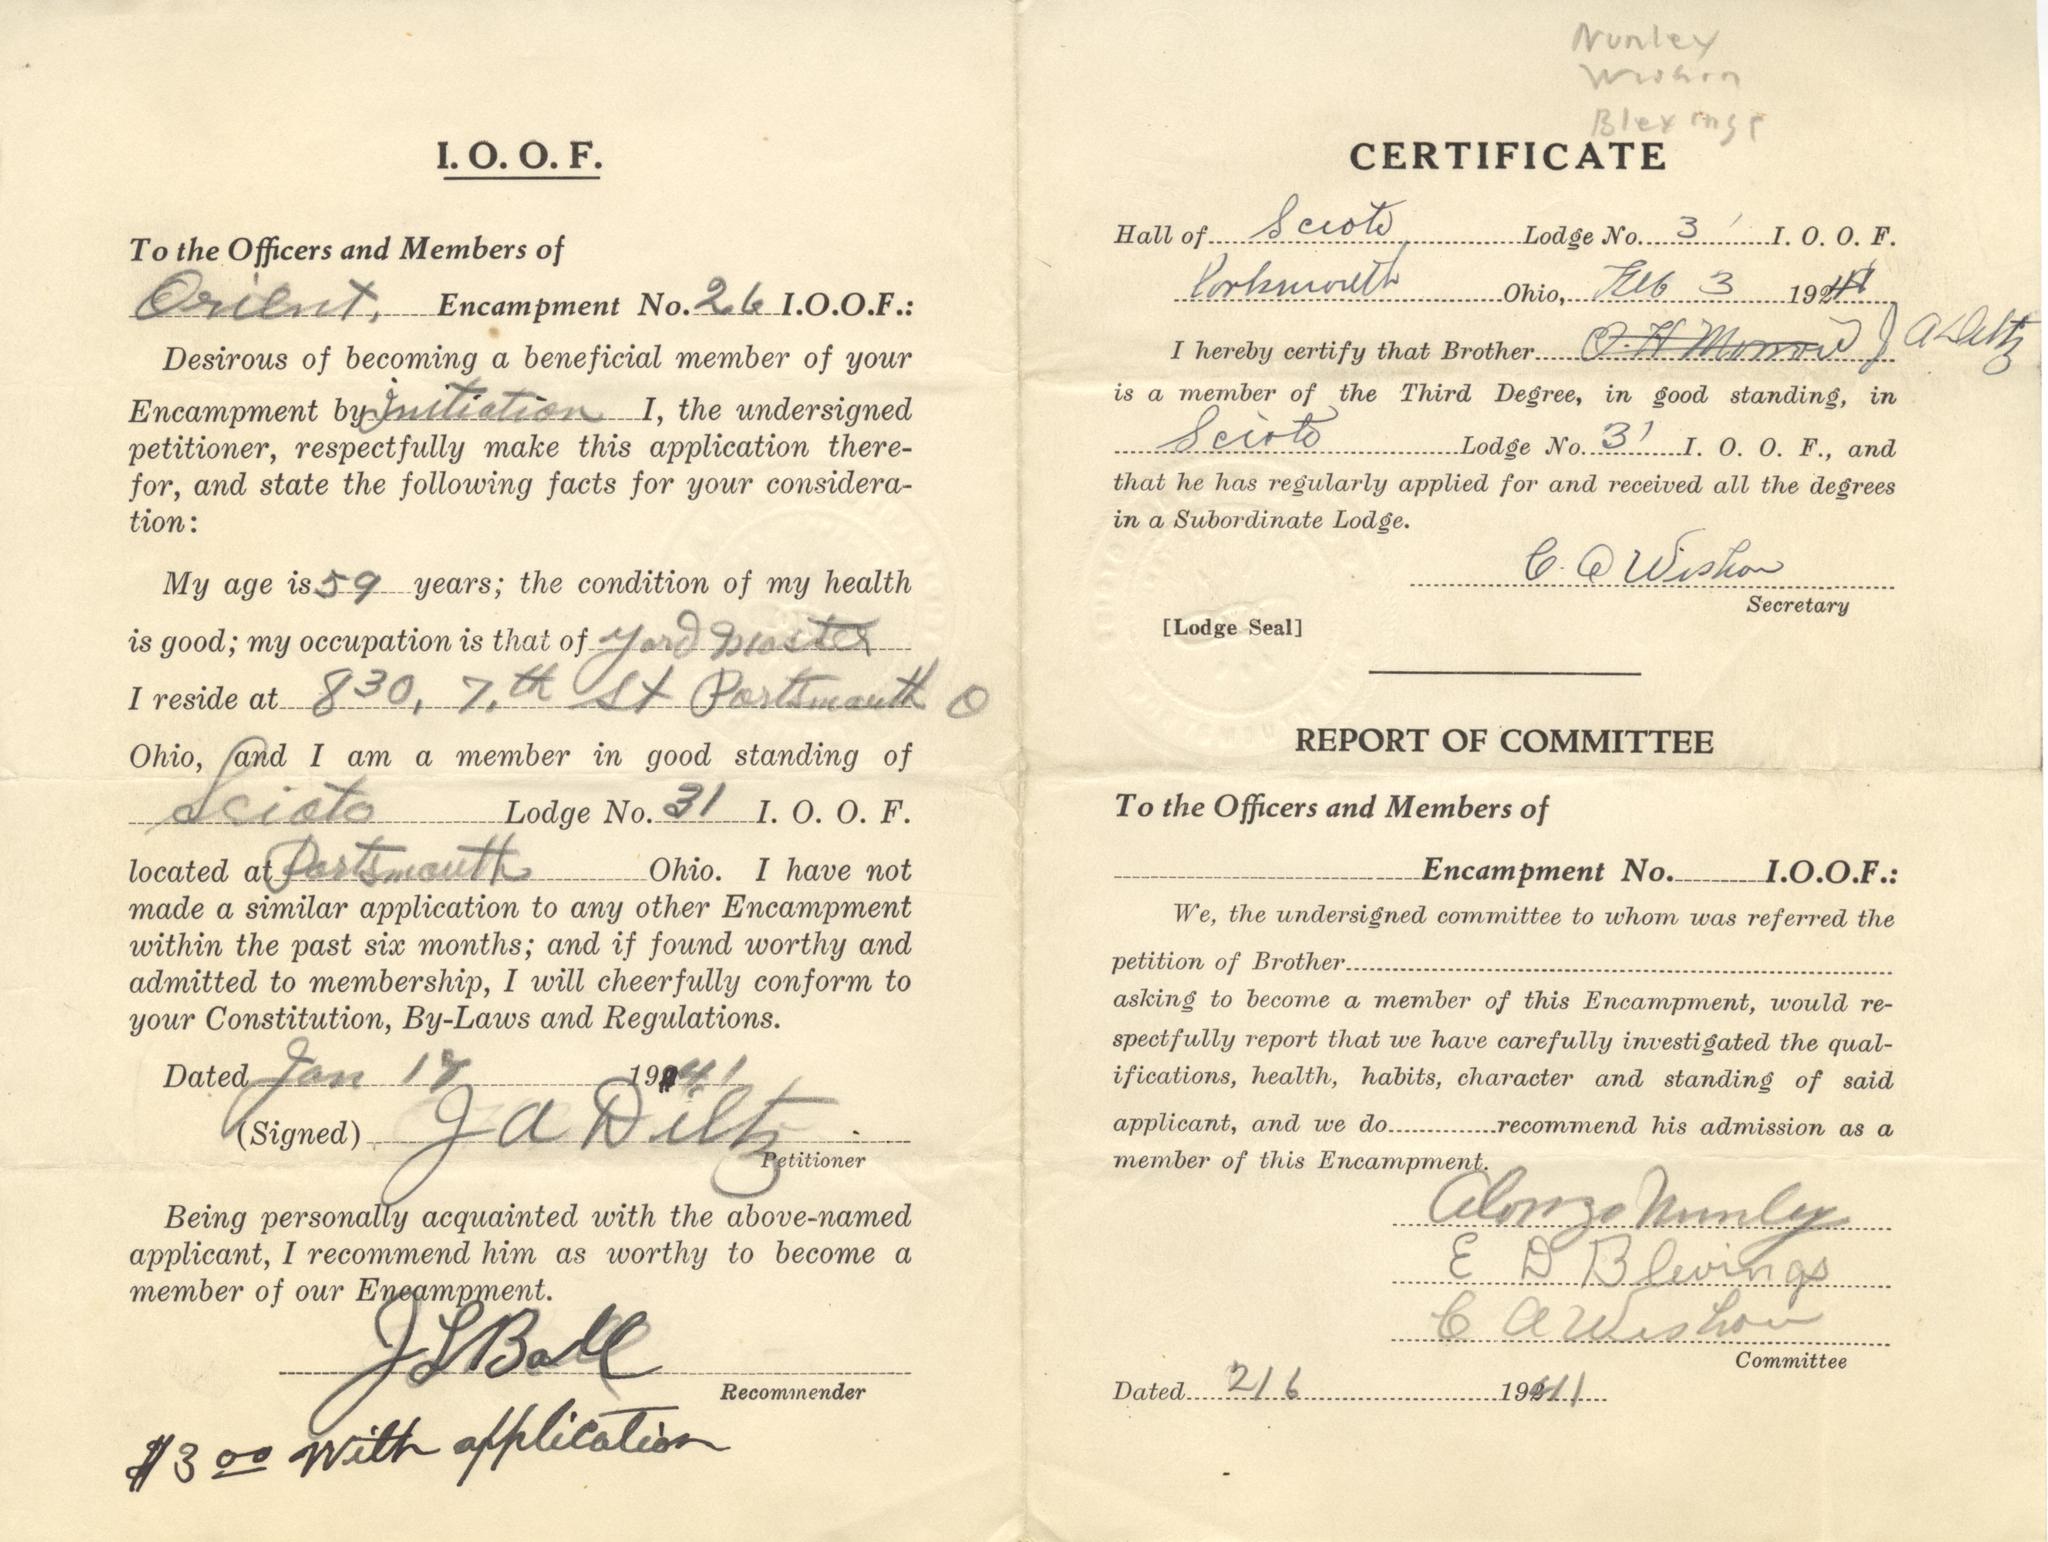 I.O.O.F.
To the Officers and Members of
Orient, Encampment No. 26 I.O.O.F.:
Desirous of becoming a beneficial member of your
Encampment by Initiation I, the undersigned
petitioner, respectfully make this application there-
for, and state the following facts for your considera-
tion:
My age is 59 years; the condition of my health
is good; my occupation is that of Yard Master
I reside at 830, 7,th St Portsmouth O
Ohio, and I am a member in good standing of
Scioto Lodge No. 31 I. O. O. F.
located at Portsmouth Ohio. I have not
made a similar application to any other Encampment
within the past six months; and if found worthy and
admitted to membership, I will cheerfully conform to
your Constitution, By-Laws and Regulations.
Dated Jan 17 1941
(Signed) J A Diltz
Petitioner
Being personally acquainted with the above-named
applicant, I recommend him as worthy to become a
member of our Encampment.
J L Ball
Recommender
$3 00 With application
Nunley
Wishon
CERTIFICATE
Hall of Scioto Lodge No. 31 I. O. O. F.
Portsmouth Ohio, Feb 3 1941
I hereby certify that Brother O. H Morrow J A Diltz
is a member of the Third Degree, in good standing, in
Scioto Lodge No. 31 I. O. O. F., and
that he has regularly applied for and received all the degrees
in a Subordinate Lodge.
C. A Wishon
Secretary
[Lodge Seal]
REPORT OF COMMITTEE
To the Officers and Members of
Encampment No. I.O.O.F.:
We, the undersigned committee to whom was referred the
petition of Brother
asking to become a member of this Encampment, would re-
spectfully report that we have carefully investigated the qual-
ifications, health, habits, character and standing of said
applicant, and we do recommend his admission as a
member of this Encampment.
Alonzo Nunley
E D Blevings
C A Wishon
Committee
Dated 2/6 1941